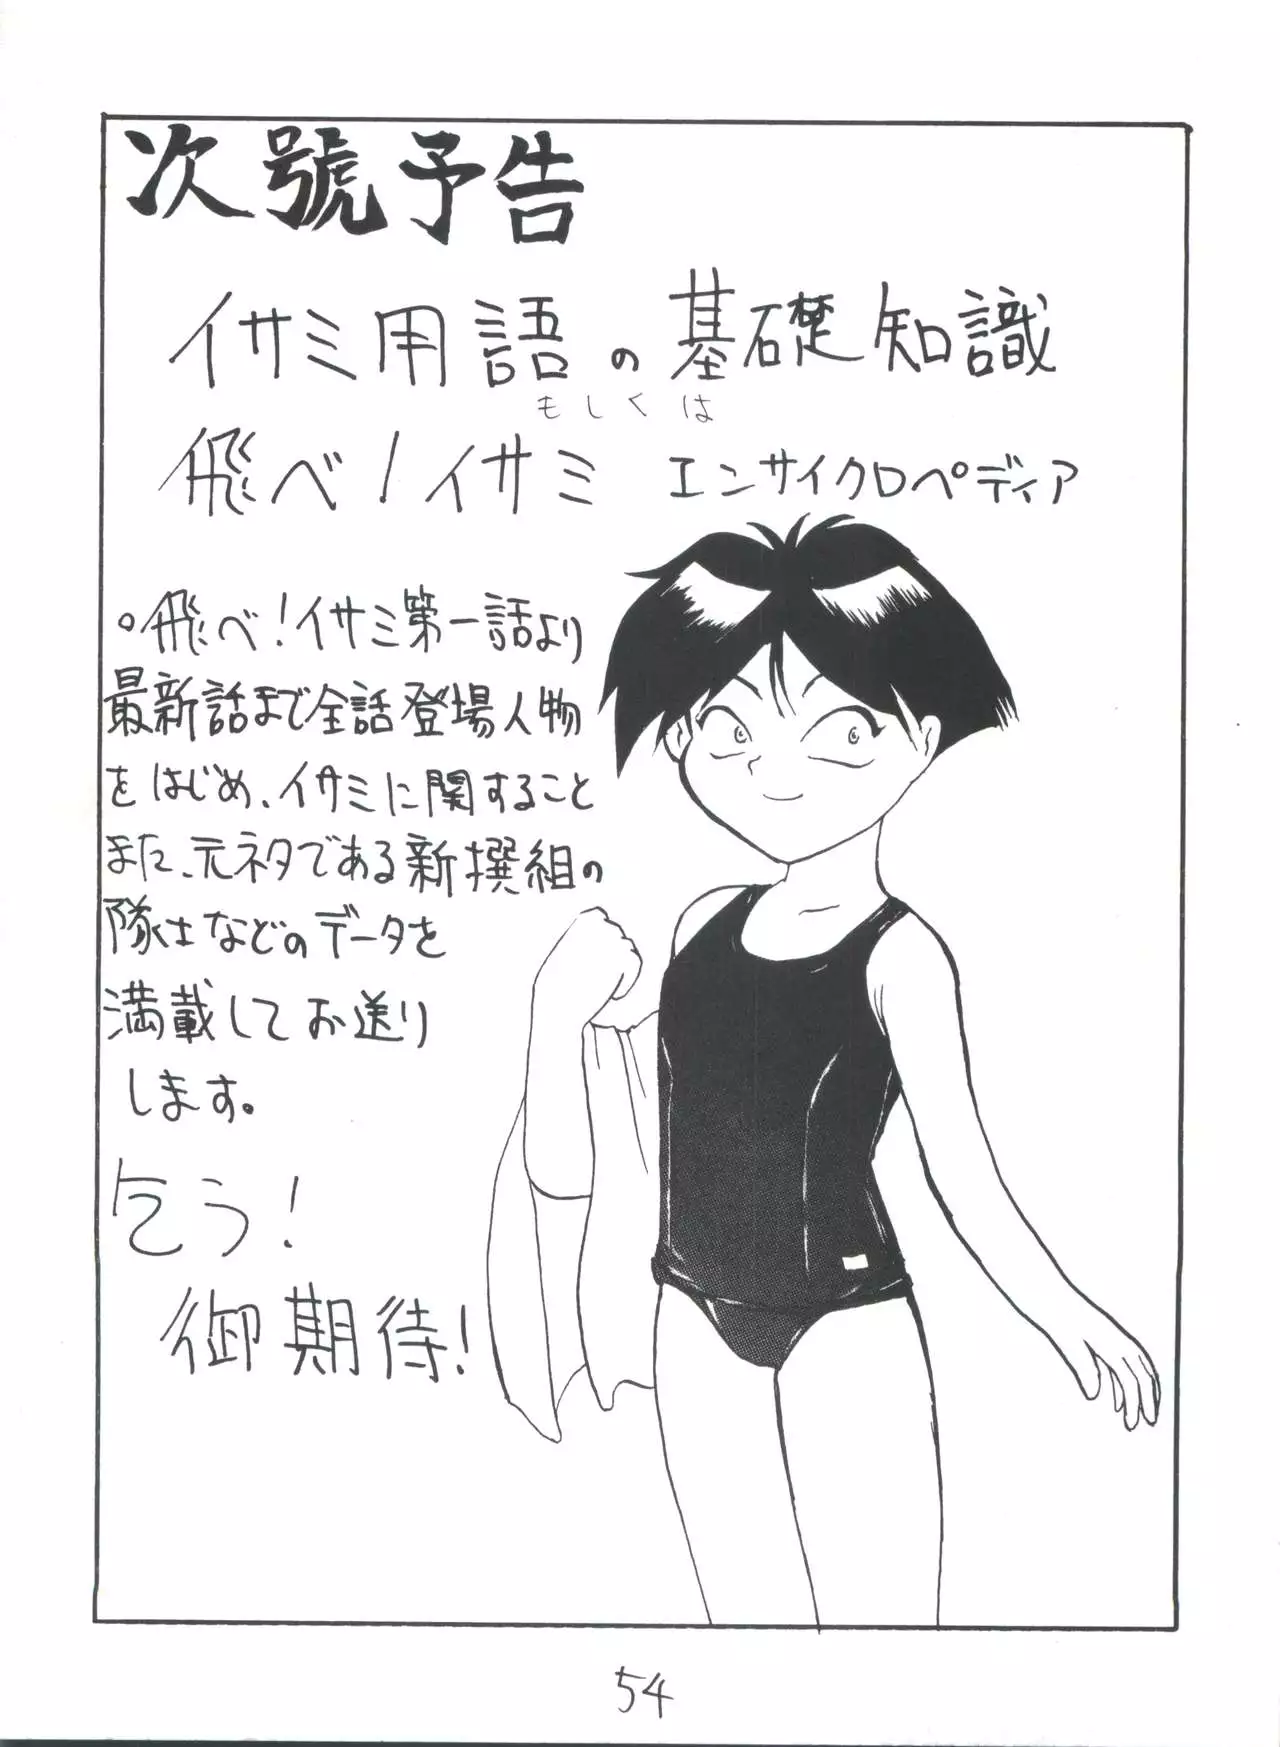 次號予告
イサミ用語の基礎知識
もしくは
飛べ!イサミ エンサイクロペディア
○飛べ!イサミ第一話より
最新話まで全話登場人物
をはじめ、イサミに関すること
また、元ネタである新撰組の
隊士などのデータを
満載してお送り
します。
乞う!
御期待!
54